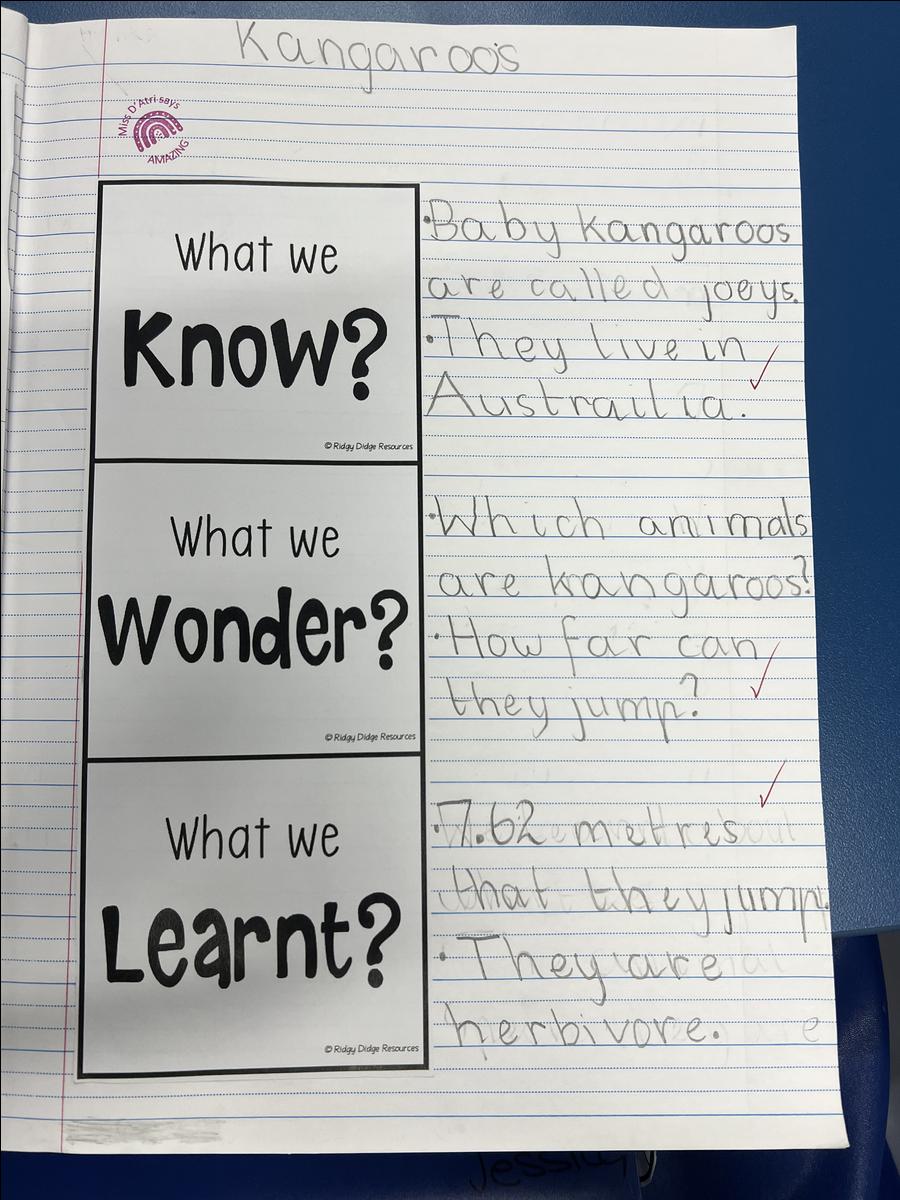 Kangaroos
Miss D'Atri says
AMAZING
What we
Know?
© Ridgy Didge Resources
·Baby kangaroos
are called joeys.
·They live in
Austrailia.
What we
Wonder?
© Ridgy Didge Resources
·Which animals
are kangaroos?
·How far can
they jump?
What we
Learnt?
© Ridgy Didge Resources
·7.62 metres
that they jump.
·They are
herbivore.